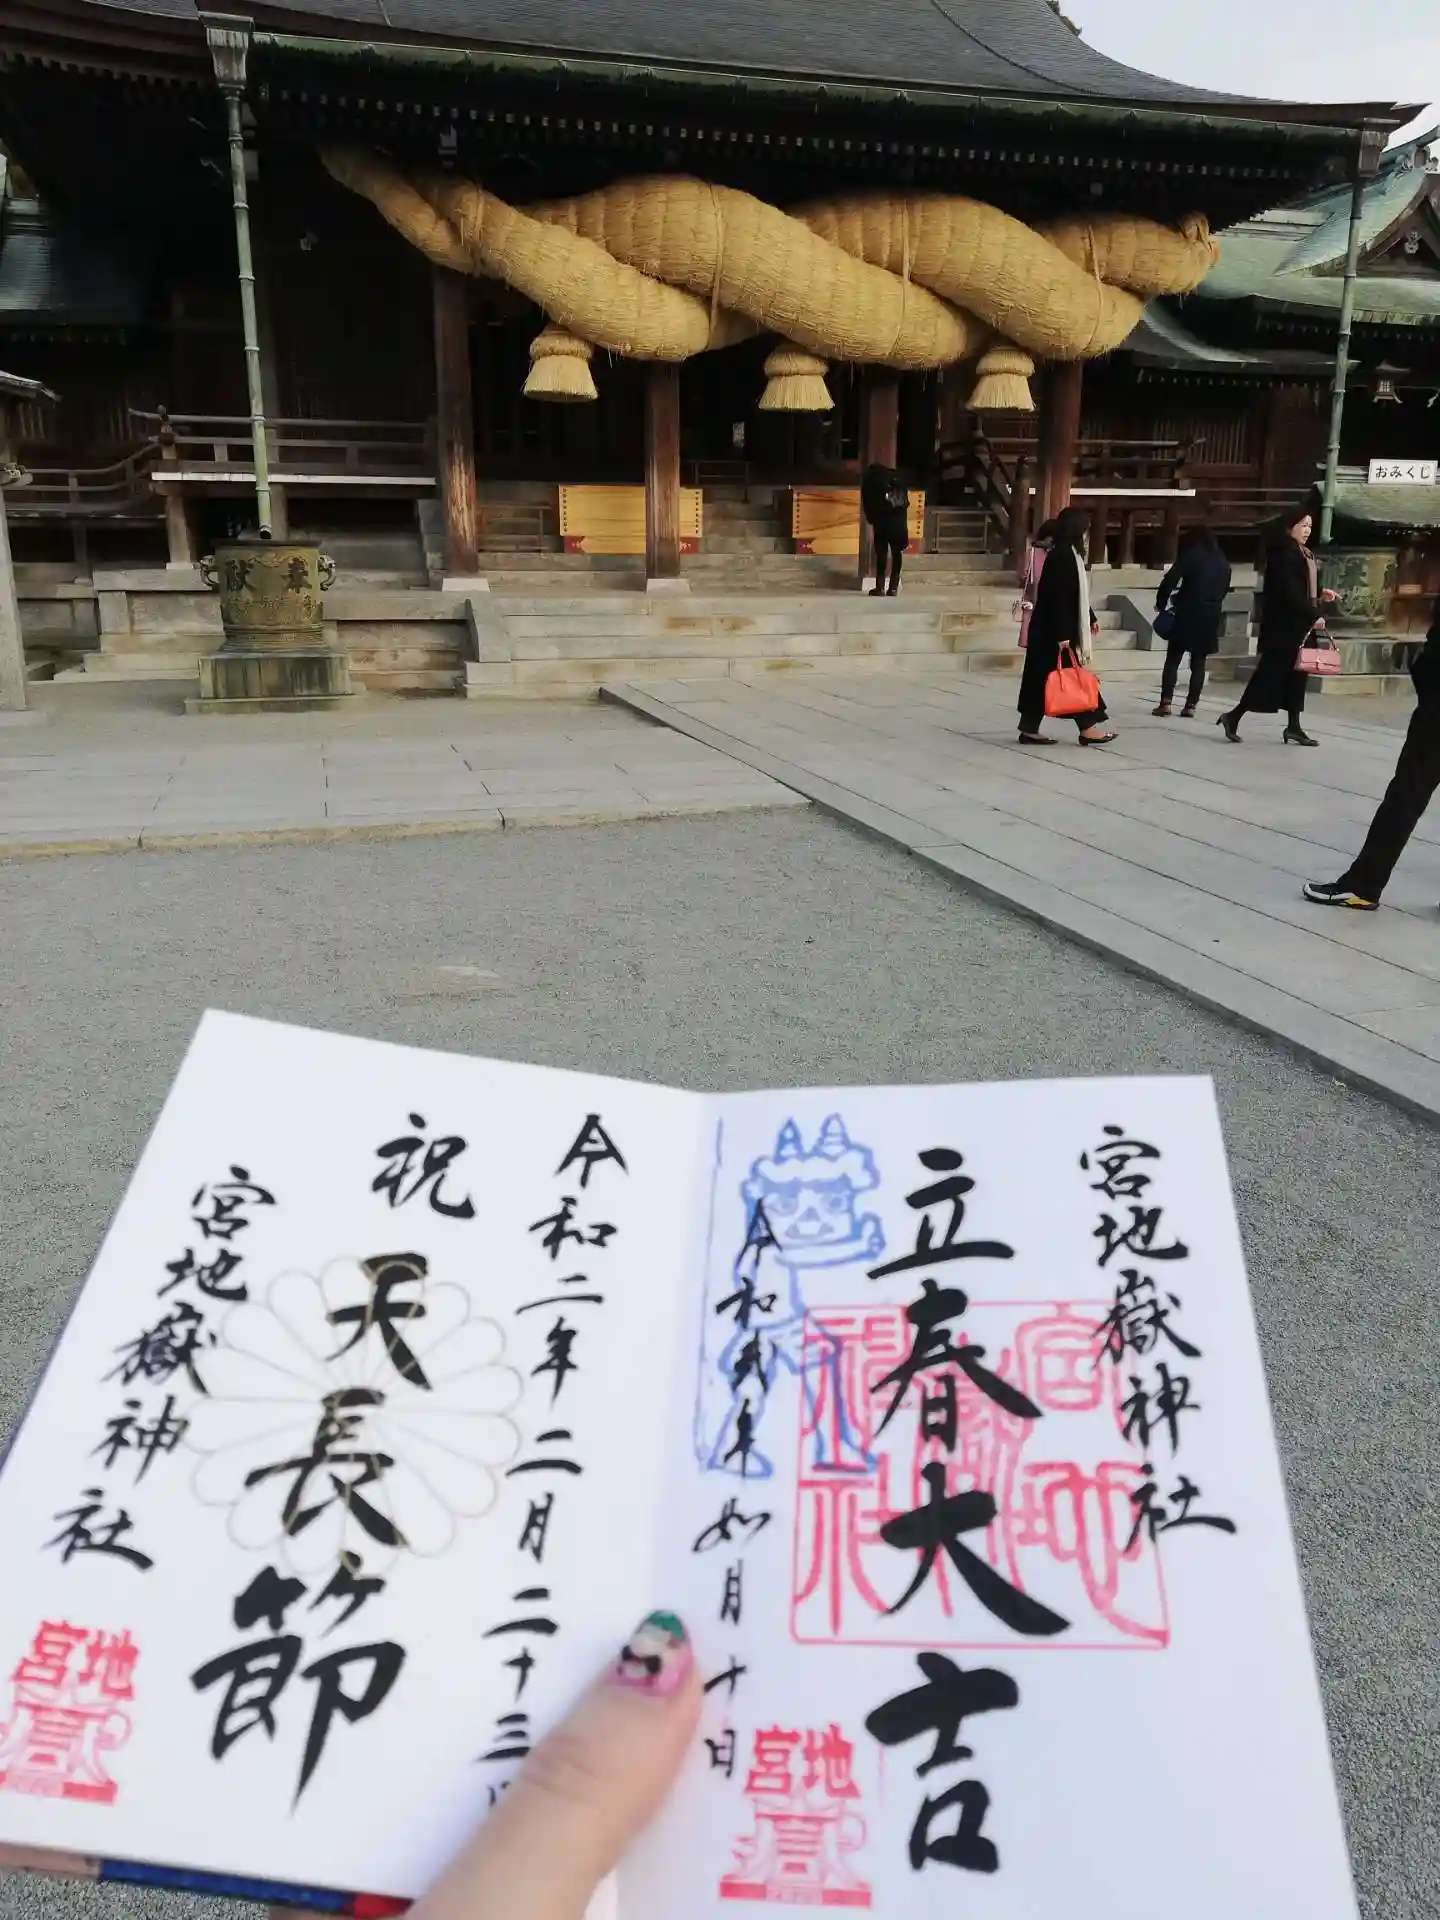 おみくじ
奉献
宮地嶽神社
立春大吉
令和弐年如月十日
宮地嶽神社
宮地嶽
令和二年二月二十三
祝
天長節
宮地嶽神社
宮地嶽